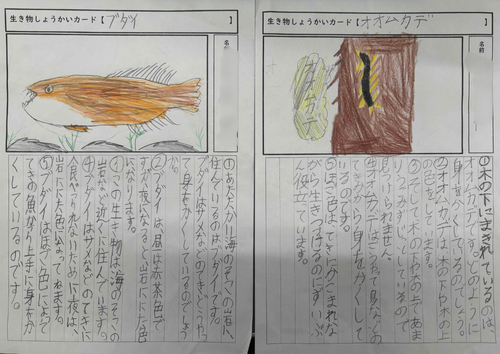 生き物しょうかいカード【ブダイ】
名前
①あたたかい海のそこの岩に
住んでいるのはブダイです。
ブダイはサメなどのてきにどうやっ
て身をかくしているのでしょう
か。
②ブダイは昼は赤茶色で
すが夜になると岩ににた色
になります。
③この生き物は海のそこの
岩など近くに住んでいます。
④ブダイはサメなどのてきに
食べられないために夜は、
岩ににた色になってねます。
⑤ブダイはほご色によって
てきの魚から上手に身をか
くしているのです。
生き物しょうかいカード【オオムカデ】
名前
オオムカデ
①木の下にまぎれているのは
オオムカデです。どのように
身をかくしているのでしょう。
②オオムカデは木の下や木の上
の色をしています。
③そして木の下や木の上であま
りうごかずじっとしているので
見つけられません。
④オオムカデはこうやって鳥などの
てきから身をかくして
いるのです。
⑤ほご色は、てきにかこまれな
がら生きつづけるのに
ん役立っています。